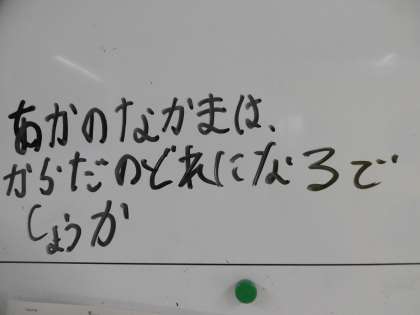 あかのなかまは、
からだのどれになろで
しょうか